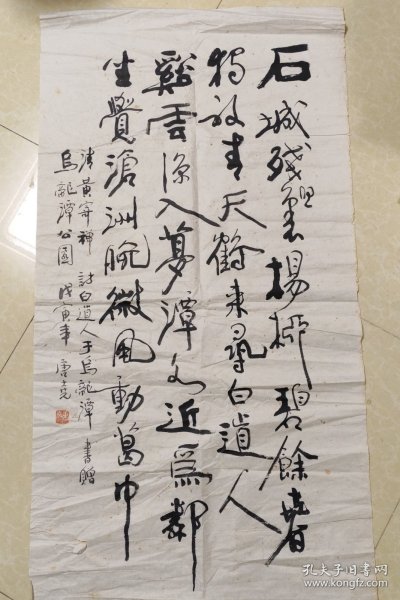 石城殘壘楊柳碧餘春
獨放青天鶴來尋白道人
谿雲涼入夢潭水近爲鄰
坐覺滄洲晚微風動葛巾
清黃 詩白道人于烏龍潭 書贈
烏龍潭公園 戊寅年
孔夫子旧书网
www.kongfz.com